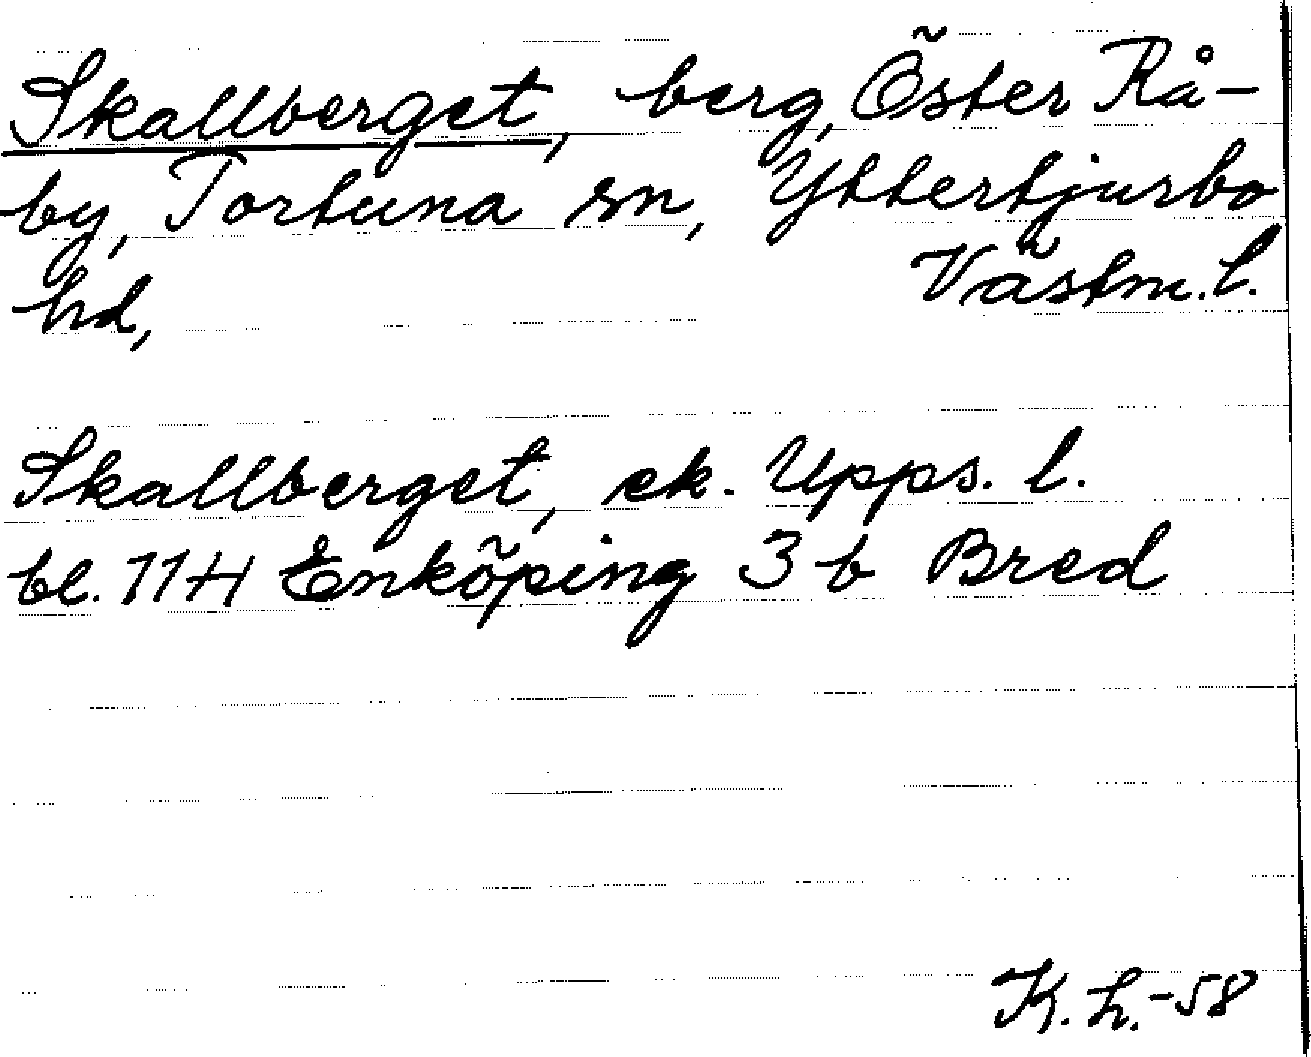 Skallberget, berg, Öster Rå-
by, Tortuna sn, Yttertjurbo
hd, Västm. l.
Skallberget, ek. Upps. l.
bl. 11H Enköping 3 b Bred
K. L. -58